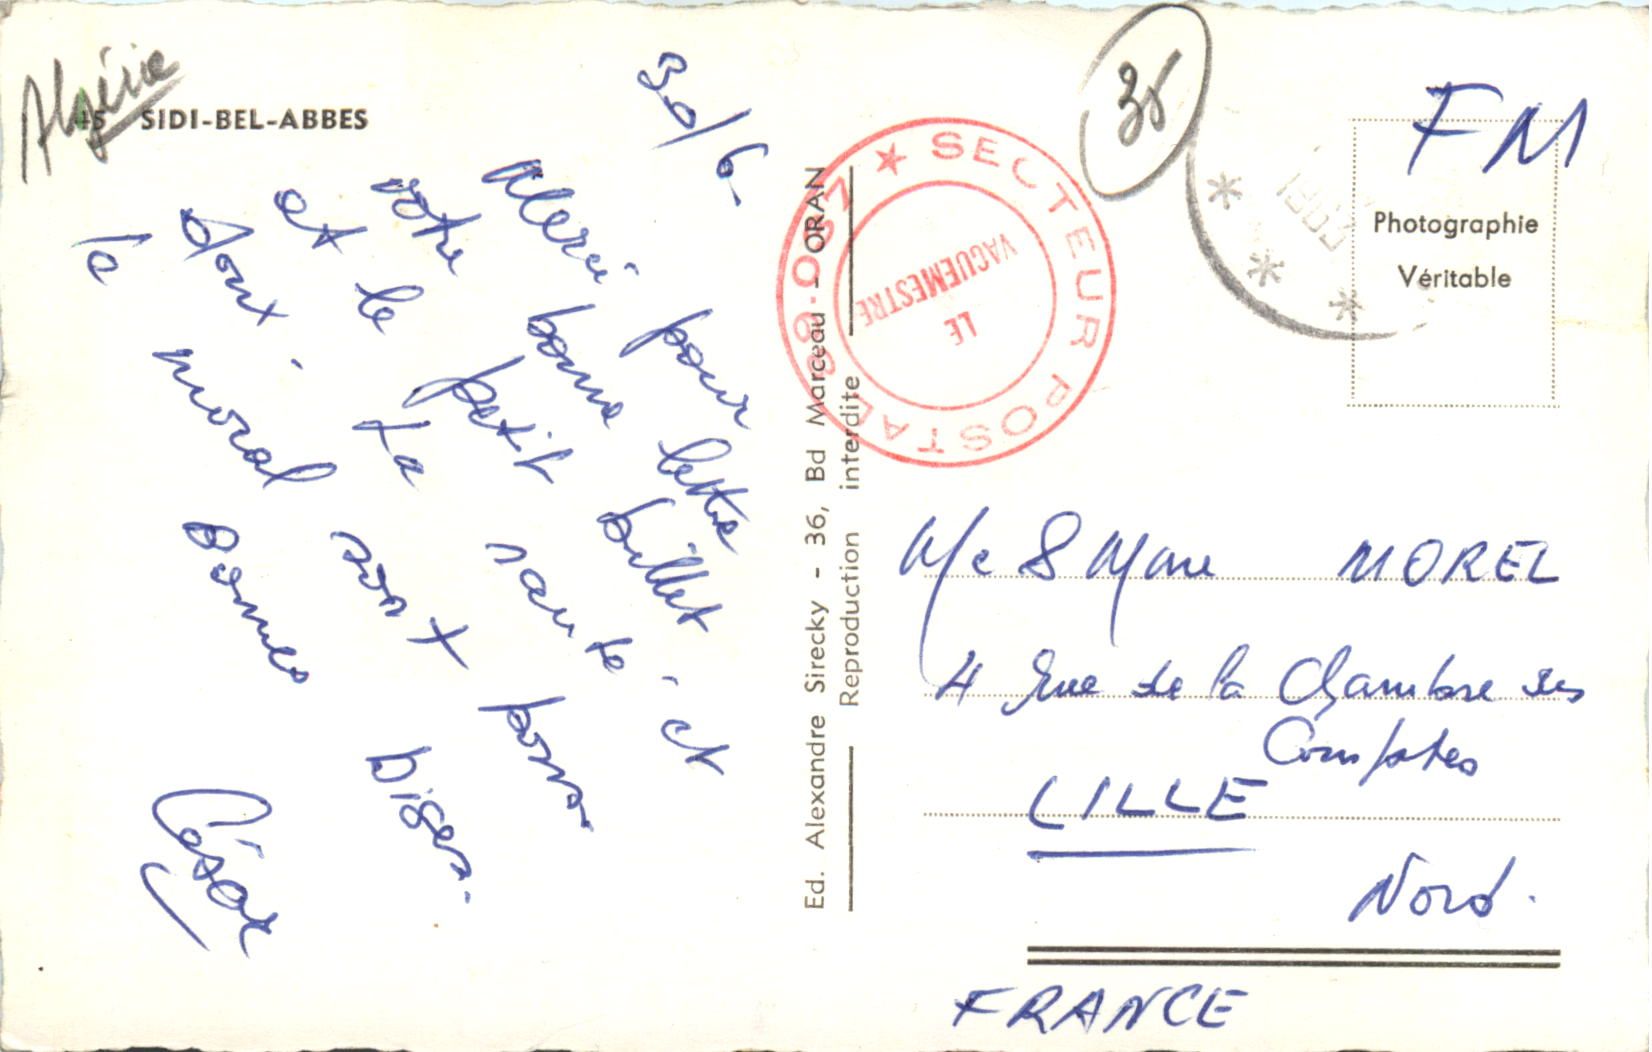 Algérie
45 SIDI-BEL-ABBES
30/6
Merci pour
votre bonne lettre
et le petit billet
doux. La santé et
le moral sont bons
Bonnes bises.
César
Ed. Alexandre Sirecky - 36, Bd Marceau - ORAN
Reproduction interdite
SECTEUR POSTAL
LE
VAGUEMESTRE
35
FM
Photographie
Véritable
MOREL
4 Rue de la Chambre des
Comptes
LILLE
Nord.
FRANCE